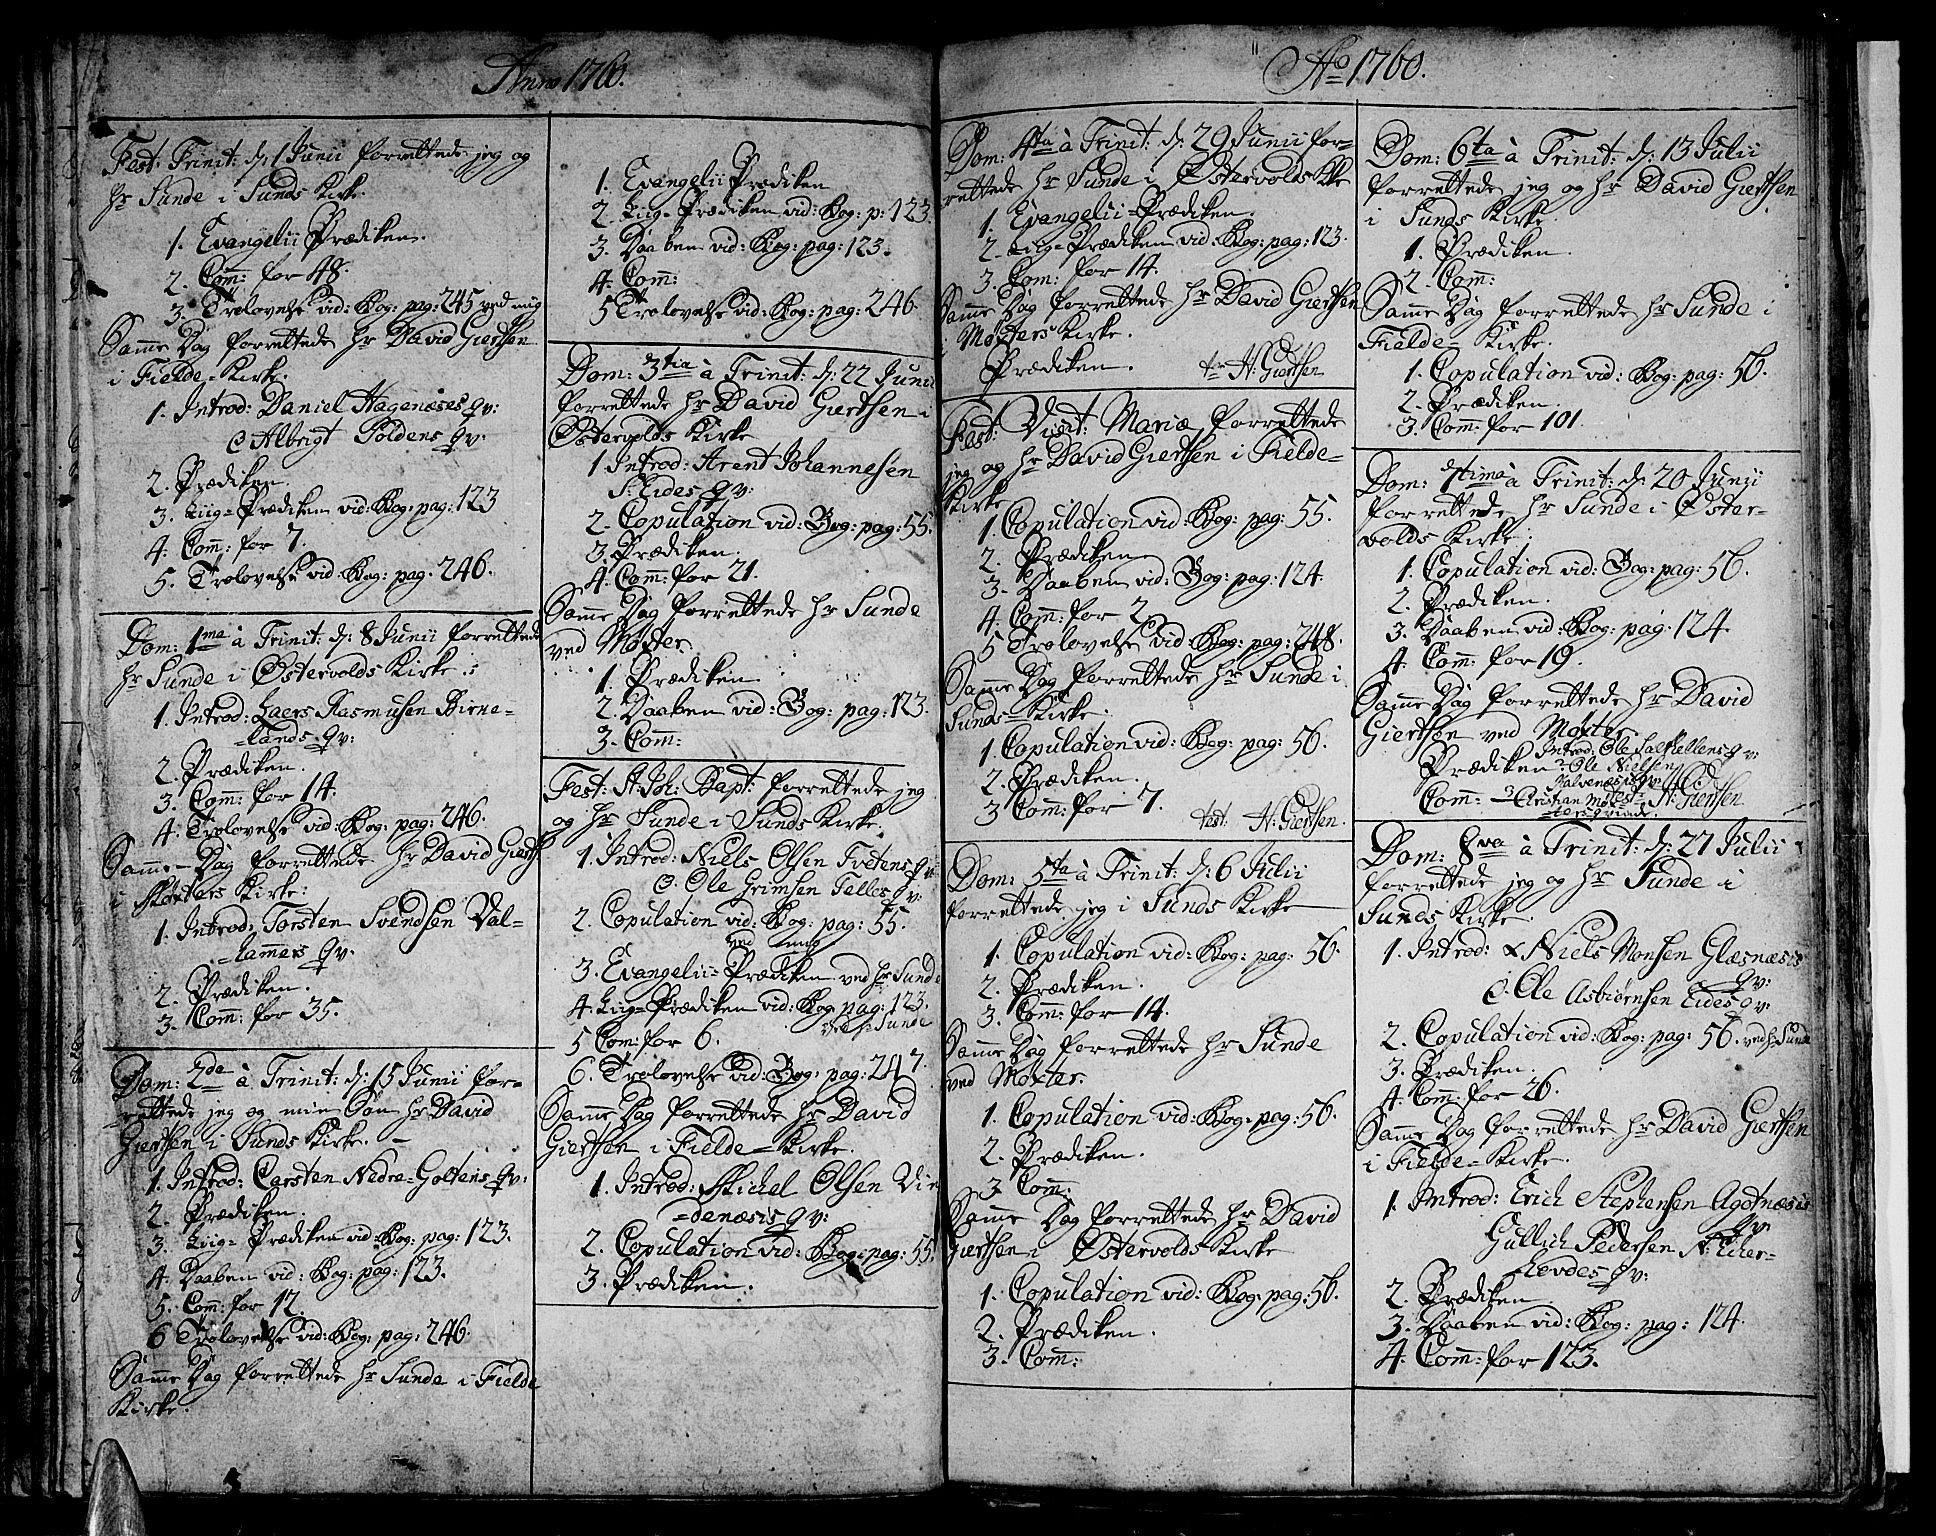 Anno 1760.
Fest: Trinit: d: 1 Junii forrettede jeg og
hr Sunde i Sunds Kirke.
1. Evangelii Prædiken.
2. Com: for 48.
3. Trolovelse vid: Bog: pag: 245 ved mig
Samme Dag forrettede hr David Giertsen
i Fielde-Kirke.
1. Introd: Daniel Hagenæses qv:
& Albrigt Toldens qv:
2. Prædiken.
3. Liig-Prædiken vid: Bog: pag: 123
4. Com: for 7.
5. Trolovelse vid: Bog: pag: 246.
Dom: 1ma à Trinit: d: 8 Junii forrettede
hr Sunde i Østervolds Kirke:
1. Introd: Laers Rasmusen Birke-
-lands qv:
2. Prædiken.
3. Com: for 14.
4. Trolovelse vid: Bog: pag: 246.
Samme Dag forrettede hr David Gierts
i Møxters Kirke:
1. Introd: Torsten Svendsen Val-
-hammers qv.
2. Prædiken.
3. Com: for 35.
Dom: 2de à Trinit: d: 15 Junii for-
rettede jeg og min Søn hr David
Giertsen i Sunds Kirke.
1. Introd: Carsten Nedre-Goltens qv:
2. Prædiken.
3. Liig-Prædiken vid: Bog: pag: 123.
4. Daaben vid: Bog: pag: 123.
5. Com: for 17.
6 Trolovelse vid: Bog: pag: 246.
Samme Dag forrettede hr Sunde i Fielde
Kirke.
1. Evangelii Prædiken
2. Liig-Prædiken vid: Bog: p: 123.
3. Daaben vid: Bog: pag: 123.
4. Com:
5 Trolovelse vid: Bog: pag: 246.
Dom: 3tia à Trinit: d: 22 Junii
forrettede hr David Giertsen i
Østervolds Kirke
1 Introd: Arent Johannesen
S: Eides qv:
2. Copulation vid: Bog: pag: 55.
3. Prædiken.
4. Com: for 21.
Samme Dag forrettede hr Sunde
ved Møxter
1. Prædiken
2. Daaben vid: Bog: pag: 123.
3. Com:
Fest: St: Joh: Bapt: forrettede jeg
og hr Sunde i Sunds Kirke.
1. Introd: Niels Olsen Tvetens qv:
& Ole Grimsen Telles qv:
2. Copulation vid: Bog: pag: 55.
ved mig
3. Evangelii-Prædiken ved hr Sunde
4. Liig-Prædiken vid: Bog: pag: 123.
ved hr Sunde
5 Com: for 6.
6. Trolovelse vid: Bog: pag: 247.
Samme Dag forrettede hr David
Giertsen i Fielde-Kirke.
1. Introd: Michel Olsen Vin
-denæsis qv:
2. Copulation vid: Bog: pag: 55.
3. Prædiken.
Ao 1760.
Dom: 4ta à Trinit: d: 29 Junii for-
rettede hr Sunde i Østervolds Kke
1. Evangelii-Prædiken.
2. Liig-Prædiken vid: Bog: pag: 123.
3. Com: for 14.
Samme Dag forrettede hr David Giertsen
i Møxters Kirke.
Prædiken. H: Giertsen
Fest: Visit: Mariæ forrettede
jeg og hr David Giertsen i Fielde-
Kirke
1. Copulation vid: Bog: pag: 55.
2. Prædiken
3. Daaben vid: Bog: pag: 124.
4. Com: for 2
5 Trolovelse vid: Bog: pag: 248.
Samme Dag forrettede hr Sunde i
Sunds-Kirke.
1 Copulation vid: Bog: pag: 56.
2. Prædiken.
3 Com: for 7. test: H: Giertsen.
Dom: 5ta à Trinit: d: 6 Julii
forrettede jeg i Sunds Kirke
1. Copulation vid: Bog: pag: 56.
2. Prædiken.
3. Com: for 14.
Samme Dag forrettede hr Sunde
ved Møxter.
1. Copulation vid: Bog: pag: 56.
2. Prædiken.
3 Com:
Samme Dag forrettede hr David
Giertsen i Østervolds Kirke
1. Copulation vid: Bog: pag: 56.
2. Prædiken.
3. Com:
Dom: 6ta à Trinit: d: 13 Julii
forrettede jeg og hr David Giertsen
i Sunds Kirke.
1. Prædiken.
2. Com:
Samme Dag forrettede hr Sunde i
Fielde-Kirke.
1. Copulation vid: Bog: pag: 56.
2. Prædiken.
3. Com: for 101.
Dom: 7tima à Trinit: d: 20 Junii
forrettede hr Sunde i Øster-
volds Kirke.
1. Copulation vid: Bog: pag: 56.
2. Prædiken.
3. Daaben vid: Bog: pag: 124.
4. Com: for 19.
Samme Dag forrettede hr David
Giertsen ved Møxter.
Introd: Ole qv:
Prædiken 2. Ole Nielsen
qv:
Com: 3 Christian H: Giertsen.
qvinde.
Dom: 8va à Trinit: d: 27 Julii
forrettede jeg og hr Sunde i
Sunds Kirke.
1. Introd: Niels Monsen Glæsnæsis
qv:
& Ole Asbiørnsen Eides qv:
2. Copulation vid: Bog: pag: 56. ved hr Sunde
3. Prædiken.
4. Com: for 26.
Samme Dag forrettede hr David Giertsen
i Fielde-Kirke.
1. Introd: Erich Stephensen Agotnæsis
qv:
Gullich Pedersen
qv:
2. Prædiken
3. Daaben vid: Bog: pag: 124.
4. Com: for 123.